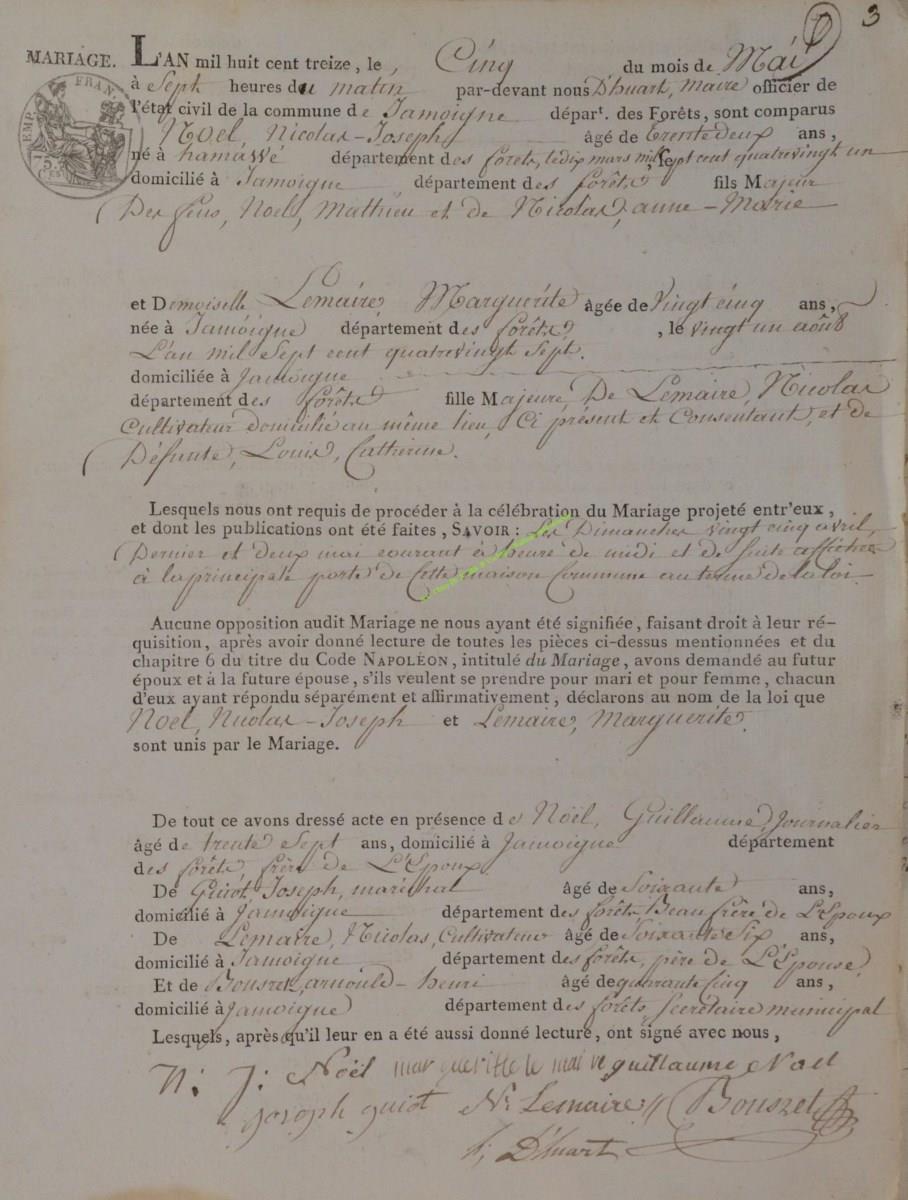 3
MARIAGE. L'AN mil huit cent treize, le Cinq du mois de Mai
EMP. FRAN.
à Sept heures du matin par-devant nous D'huart, Maire officier de
l'état civil de la commune de Jamoigne dépar.t des Forêts, sont comparus
Noël, Nicolas-Joseph âgé de trente deux ans,
né à hamawé département des forêts, le dix mars mil sept cent quatrevingt un
domicilié à Jamoigne département des forêts fils Majeur
Des feus, Noël, Mathieu et de Nicolas, anne-Marie
et Demoiselle Lemaire, Marguerite âgée de Vingt cinq ans,
née à Jamoigne département des forêts, le vingt un août
L'an mil Sept cent quatrevingt Sept.
domiciliée à Jamoigne
département des forêts fille Majeure, De Lemaire, Nicolas
Cultivateur domicilié au même lieu, Ci présent et Consentant, et de
Défunte, Louis, Catherine.
Lesquels nous ont requis de procéder à la célébration du Mariage projeté entr'eux,
et dont les publications ont été faites, SAVOIR: Les Dimanches vingt cinq avril,
Dernier et deux mai courant à heure de midi et de suite affichée
à la principale porte de Cette maison Commune au terme de la loi
Aucune opposition audit Mariage ne nous ayant été signifiée, faisant droit à leur ré-
quisition, après avoir donné lecture de toutes les pièces ci-dessus mentionnées et du
chapitre 6 du titre du Code NAPOLÉON, intitulé du Mariage, avons demandé au futur
époux et à la future épouse, s'ils veulent se prendre pour mari et pour femme, chacun
d'eux ayant répondu séparément et affirmativement, déclarons au nom de la loi que
Noël, Nicolas-Joseph et Lemaire, Marguerite
sont unis par le Mariage.
De tout ce avons dressé acte en présence de Noël, Guillaume, Journalier
âgé de trente Sept ans, domicilié à Jamoigne département
des forêts, frère de L'Epoux
De Guiot, Joseph, maréchal âgé de Soixante ans,
domicilié à Jamoigne département des forêts, Beau frère de L'Epoux
De Lemaire, Nicolas, Cultivateur âgé de Soixante Six ans,
domicilié à Jamoigne département des forêts, père de L'Epouse,
Et de Bouszet, arnould-henri âgé de quarante cinq ans,
domicilié à Jamoigne département des forêts, Secrétaire municipal
Lesquels, après qu'il leur en a été aussi donné lecture, ont signé avec nous,
N: J: Noël margueritte le maire guillaume Noel
joseph guiot N. Lemaire Bouszet
D'huart